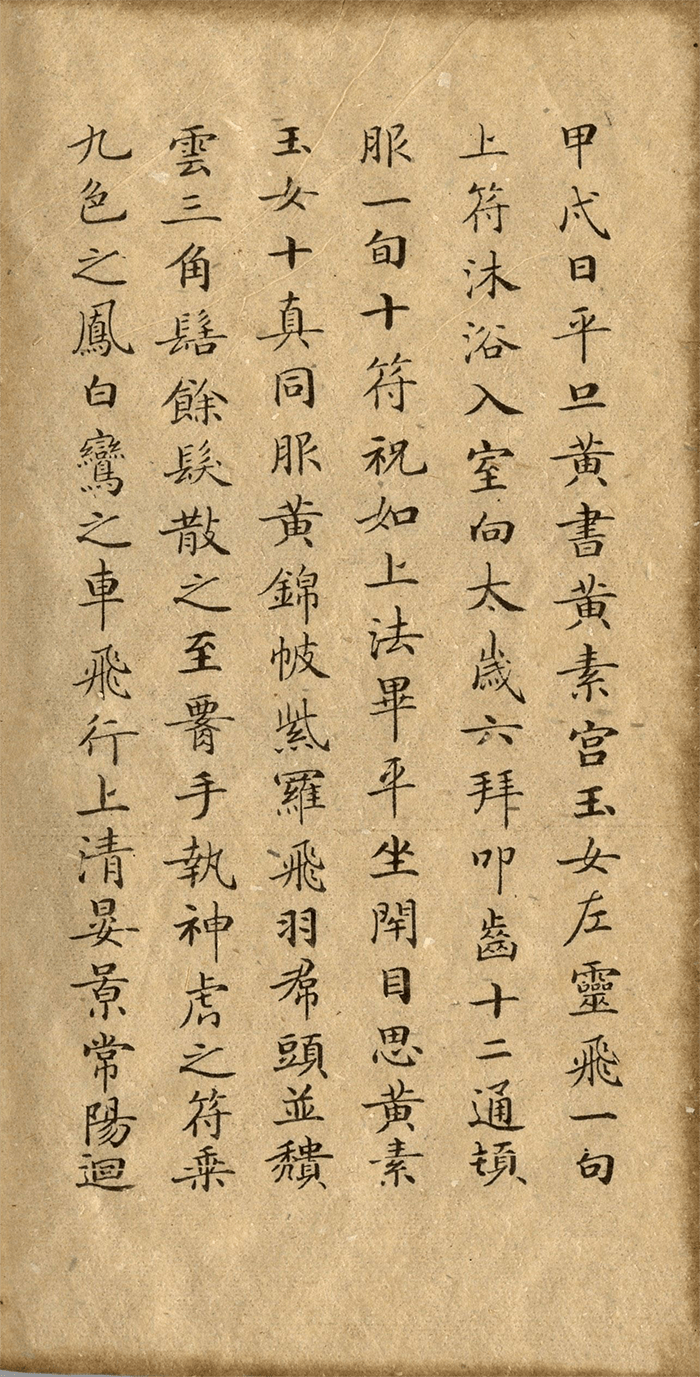 甲戌日平旦黄書黄素宫玉女左靈飛一旬
上符沐浴入室向太歲六拜叩齒十二通頓
服一旬十符祝如上法畢平坐閇目思黄素
玉女十真同服黄錦帔紫羅飛羽帬頭並頽
雲三角髻餘髮散之至䙅手執神虎之符乗
九色之鳳白鸞之車飛行上清晏景常陽迴